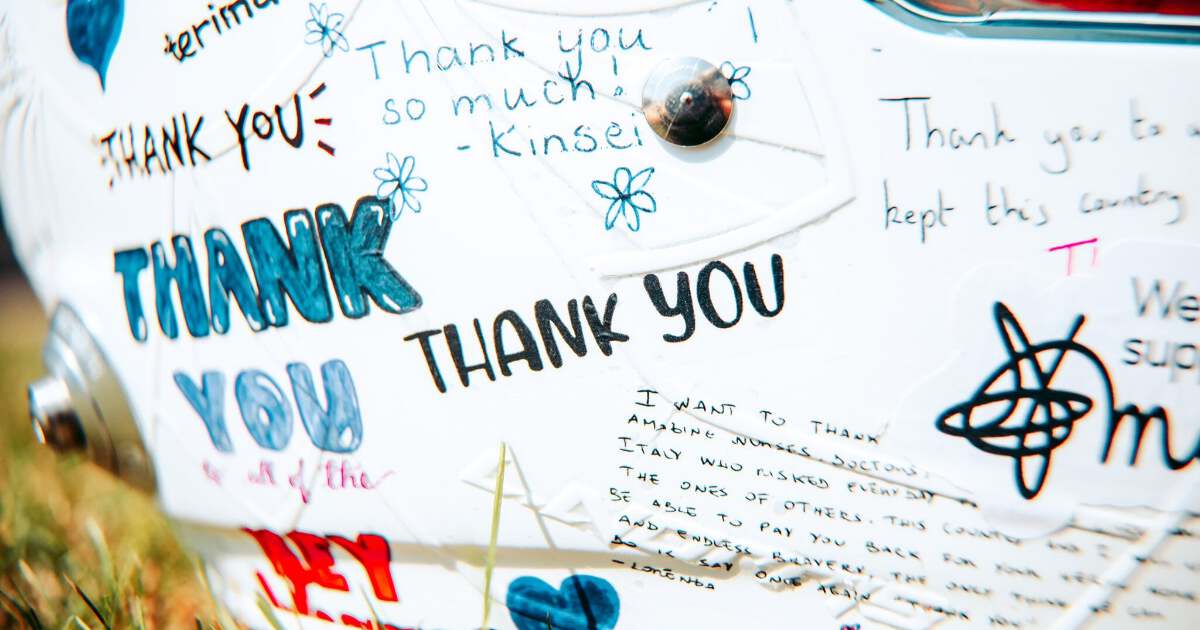 Thank you
so much!
- Kinsei
THANK YOU
THANK
YOU
to all of the
THANK YOU
Thank you to
kept this country
We
sup
I WANT TO THANK
AMAZING NURSES, DOCTORS,
ITALY WHO RISKED EVERYDAY
THE ONES OF OTHERS. THIS
BE ABLE TO PAY YOU BACK FOR YOUR
AND ENDLESS BRAVERY. THE ONLY THING WE CAN
DO IS SAY ONCE AGAIN "THANK YOU"
- LORENDA